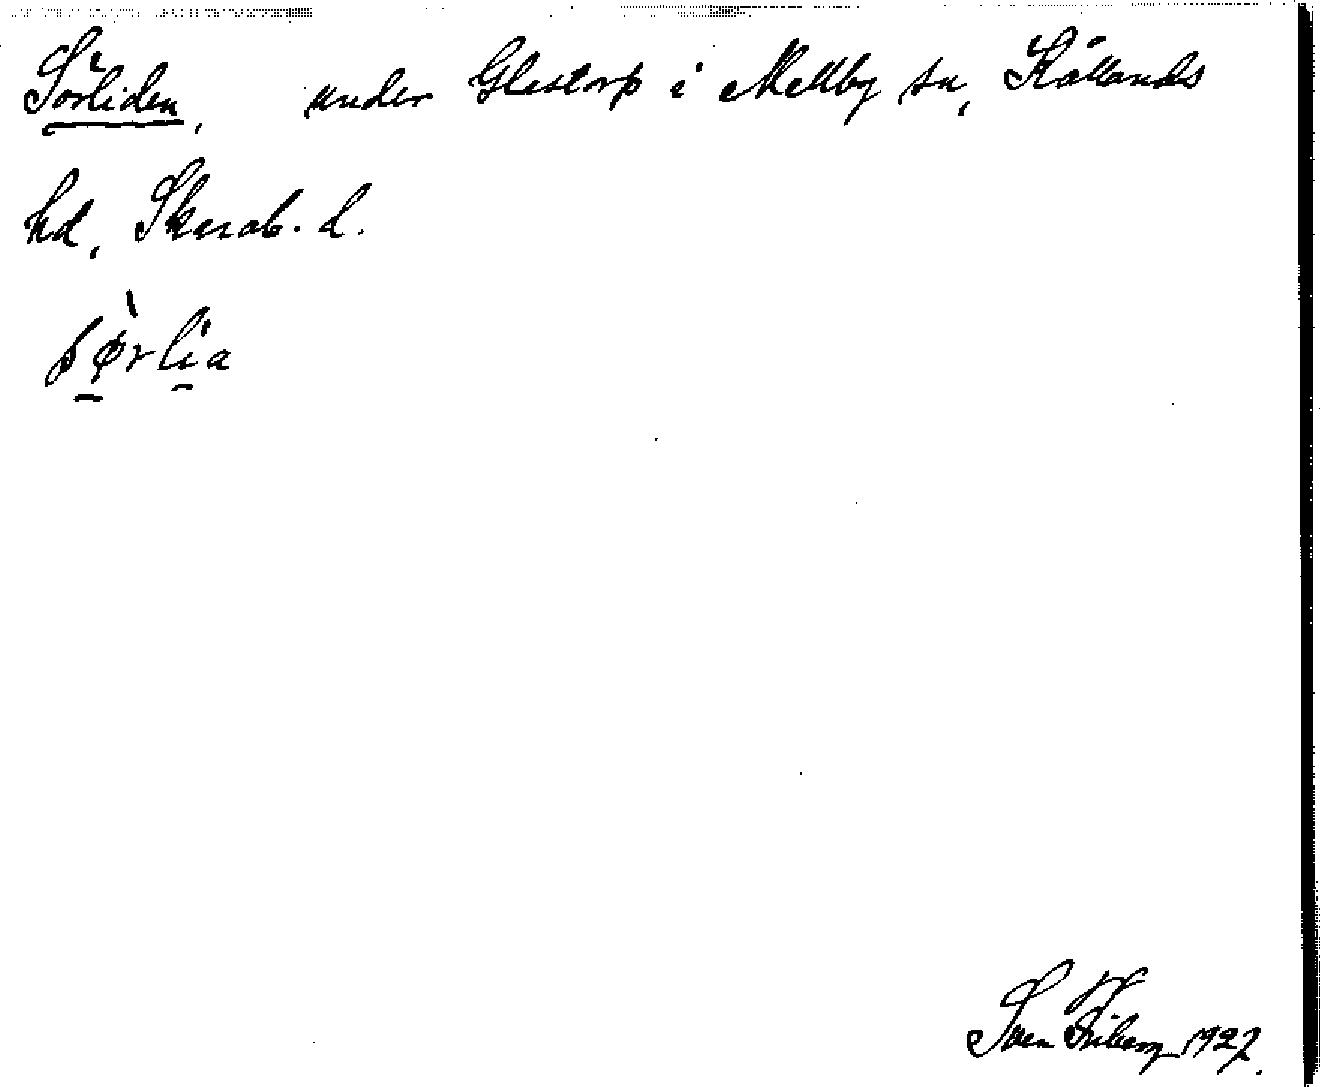 Sörliden, under Glestorp i Mellby sn, Kållands
hd, Skarab. l.
sø̀rlia
Sven Friberg 1927.